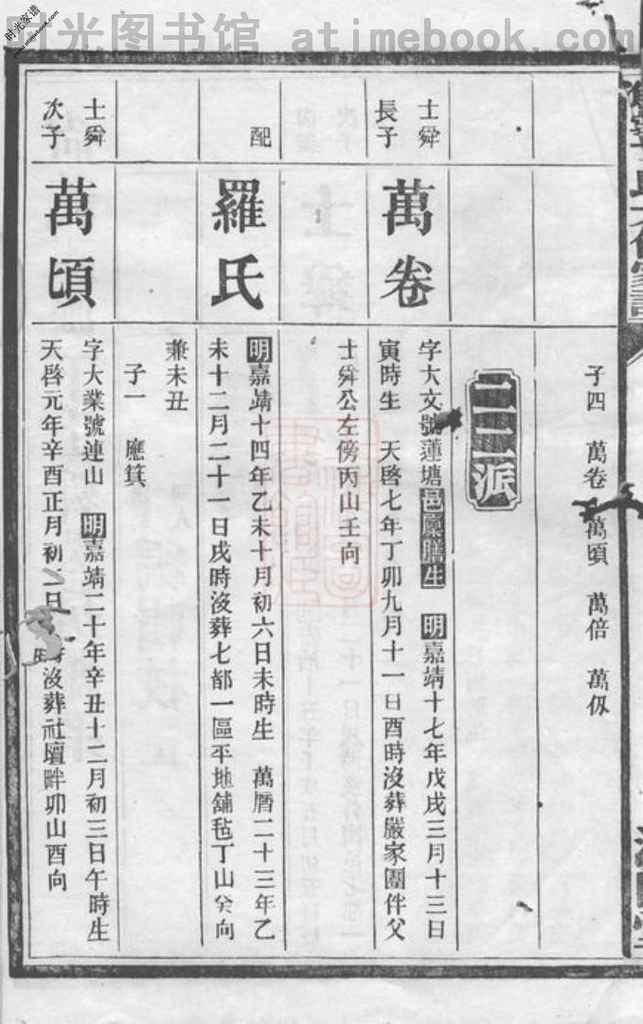 时光图书馆 atimebook.com
时光家谱
子四 萬卷 萬頃 萬倍 萬仭
二三派
士舜
長子
萬卷
字大文號蓮塘邑廩膳生 明嘉靖十七年戊戌三月十三日
寅時生 天啓七年丁卯九月十一日酉時沒葬嚴家園伴父
士舜公左傍丙山壬向
配
羅氏
明嘉靖十四年乙未十月初六日未時生 萬曆二十三年乙
未十二月二十一日戌時沒葬七都一區平地鋪毡丁山癸向
兼未丑
子一 應箕
士舜
次子
萬頃
字大業號連山 明嘉靖二十年辛丑十二月初三日午時生
天啓元年辛酉正月初二日 時沒葬社壇畔卯山酉向